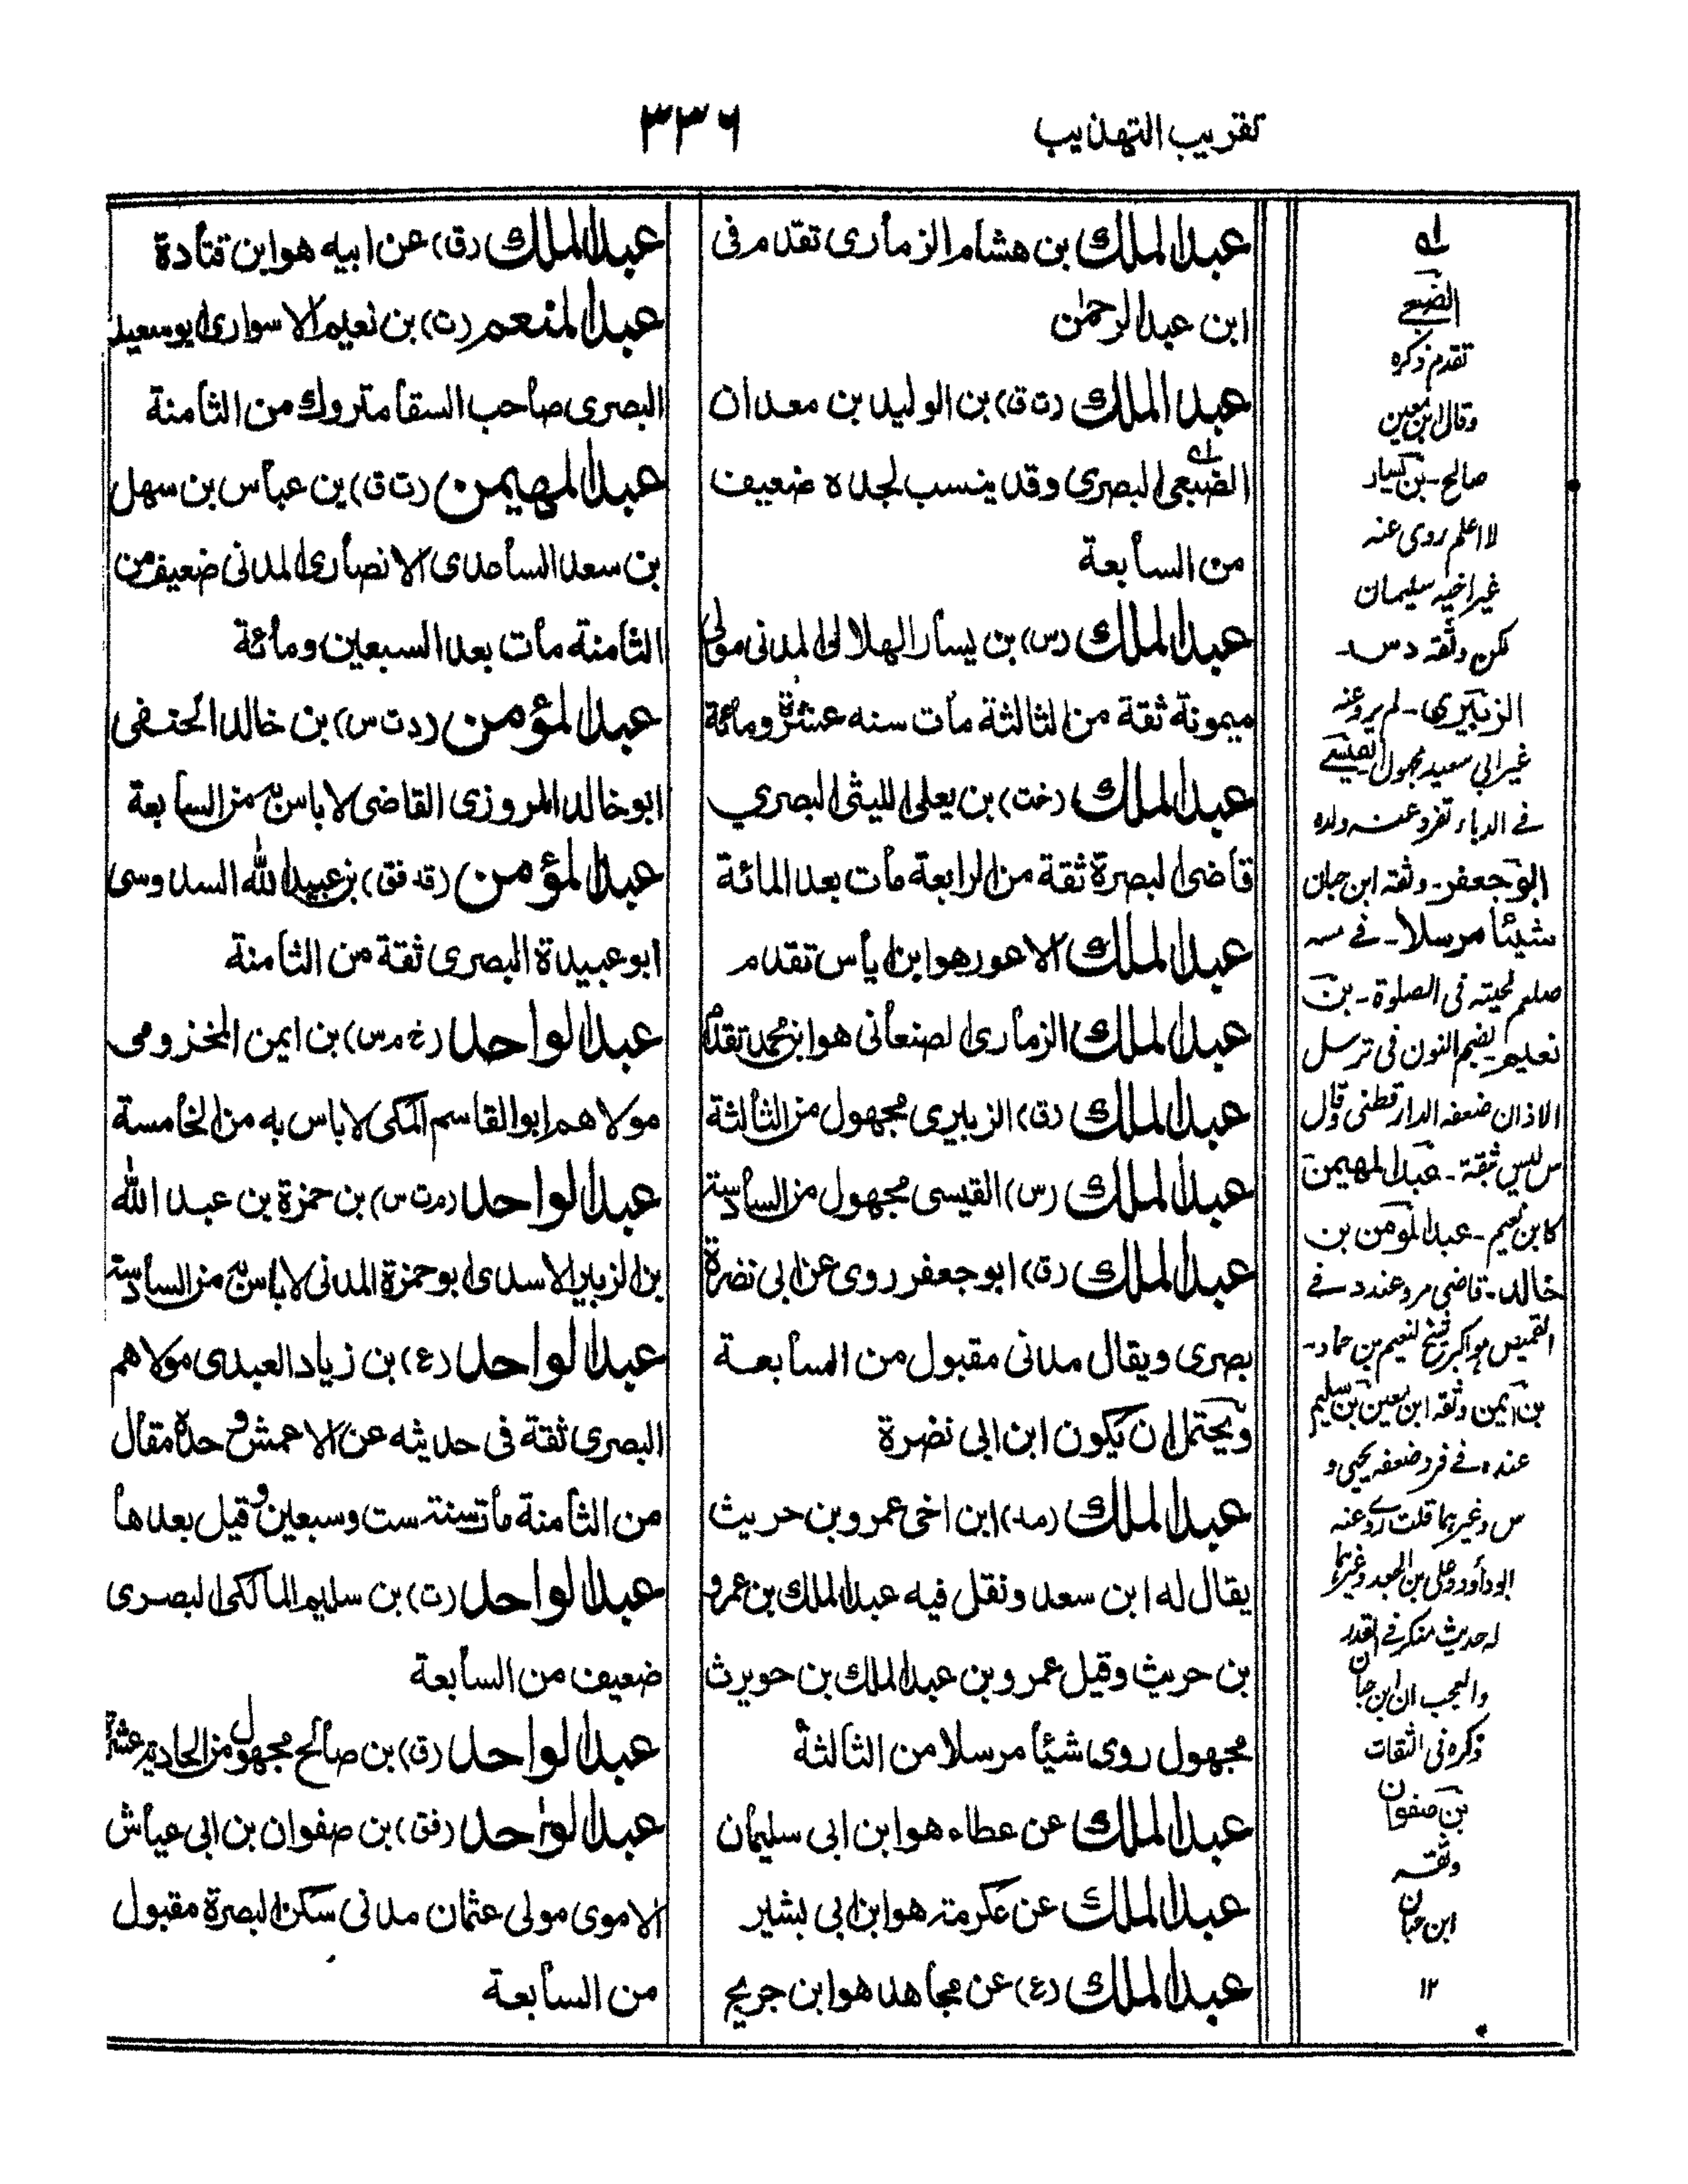 تقريب التهذيب
٣٣٦
عبد الملك بن هشام الزمارى تقدم فى
ابن عبد الرحمن
عبد الملك (ت ق) بن الوليد بن معدان
الضبعى البصرى وقد ينسب لجده ضعيف
من السابعة
عبد الملك (س) بن يسار الهلالى المدنى مولى
ميمونة ثقة من الثالثة مات سنه عشرة ومائة
عبد الملك (خت) بن يعلى الليثى البصري
قاضى البصرة ثقة من الرابعة مات بعد المائة
عبد الملك الاعور هو ابن اياس تقدم
عبد الملك الزمارى الصنعانى هو ابن محمد تقدم
عبد الملك (ق) الزبيرى مجهول من الثالثة
عبد الملك (س) القيسى مجهول من السادسة
عبد الملك (ق) ابو جعفر روى عن ابى نضرة
بصرى ويقال مدنى مقبول من السابعة
ويحتمل ان يكون ابن ابى نضرة
عبد الملك (مد) ابن اخى عمرو بن حريث
يقال له ابن سعد ونقل فيه عبد الملك بن عمرو
بن حريث وقيل عمرو بن عبد الملك بن حويرث
مجهول روى شيئا مرسلا من الثالثة
عبد الملك عن عطاء هو ابن ابى سليمان
عبد الملك عن عكرمة هو ابن ابى بشير
عبد الملك (ع) عن مجاهد هو ابن جريج
عبد الملك (ق) عن ابيه هو ابن قتادة
عبد المنعم (ت) بن نعيم الاسوارى ابو سعيد
البصرى صاحب السقا متروك من الثامنة
عبد المهيمن (ت ق) بن عباس بن سهل
بن سعد الساعدى الانصارى المدنى ضعيف من
الثامنة مات بعد السبعين ومائة
عبد المؤمن (د ت س) بن خالد الحنفى
ابو خالد المروزى القاضى لا باس به من السابعة
عبد المؤمن (قد فق) بن عبيد الله السدوسى
ابو عبيدة البصرى ثقة من الثامنة
عبد الواحد (خ م س) بن ايمن المخزومى
مولاهم ابو القاسم المكى لا باس به من الخامسة
عبد الواحد (م ت س) بن حمزة بن عبد الله
بن الزبير الاسدى ابو حمزة المدنى لا باس به من السادسة
عبد الواحد (ع) بن زياد العبدى مولاهم
البصرى ثقة فى حديثه عن الاعمش وحده مقال
من الثامنة مات سنة ست وسبعين وقيل بعدها
عبد الواحد (ت) بن سليم المالكى البصرى
ضعيف من السابعة
عبد الواحد (ق) بن صالح مجهول من الحادية عشرة
عبد الواحد (فق) بن صفوان بن ابى عياش
الاموى مولى عثمان مدنى سكن البصرة مقبول
من السابعة
لـه
الضبعے
تقدم ذكره
وقال ابن معين
صالح - بن يسار
لا اعلم روى عنه
غير اخيه سليمان
لكن وثقه د س -
الزبيرى - لم يرو عنه
غير ابى سعيد مجهول القيسے
فے الدباء تفرد عنه ولده
ابو جعفر - وثقه ابن حبان
شيئا مرسلا - فے مسه
صلعم لحيته فى الصلوة - بن
نعيم - بضم النون فى ترسل
الاذان ضعفه الدارقطنى وقال
س ليس ثقة - عبد المهيمن
كابن نعيم - عبد المؤمن بن
خالد - قاضى مرو عند د فے
القميص هو اكبر شيخ لنعيم بن حماد -
بن ايمن وثقه ابن معين بن سليم
عنده فے فرد ضعفه يحيى و
س وغيرهما قلت روى عنه
ابو داود وعلى بن الجعد وغيرهما
له حديث منكر فے القدر
والعجب ان ابن حبان
ذكره فى الثقات
بن صفوان
وثقه
ابن حبان
١٢